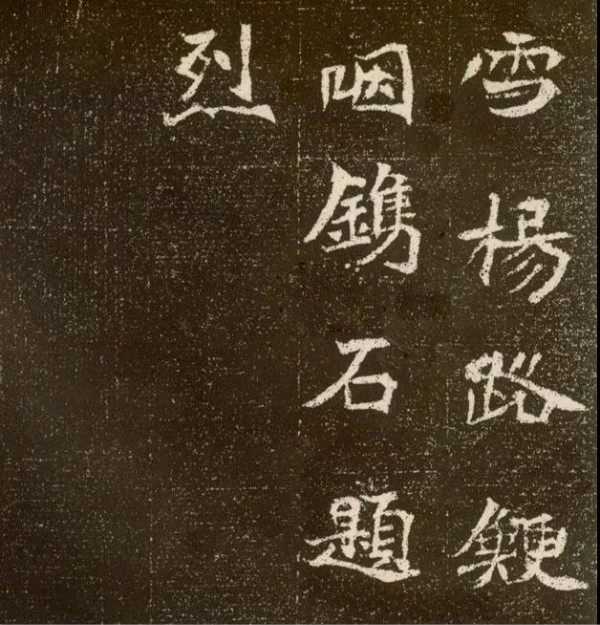 雪楊路鯁
咽鐫石題
烈